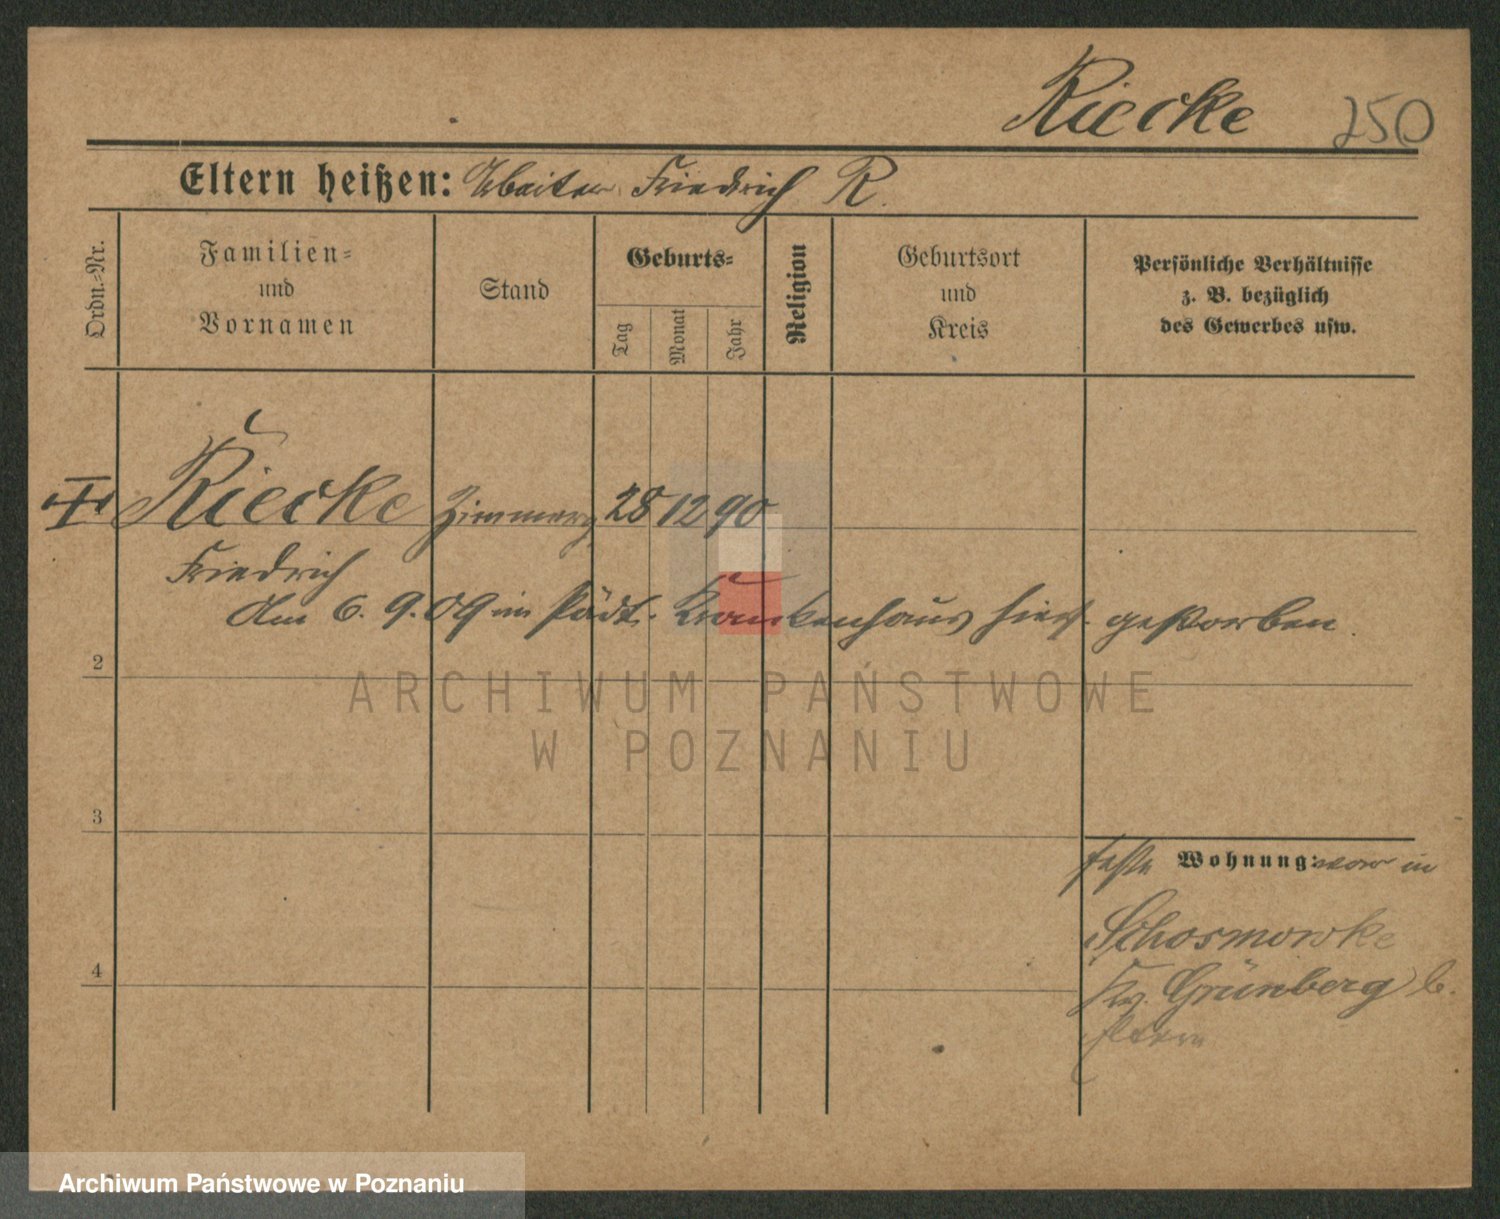 Riecke 250
Eltern heißen: Arbeiter Friedrich R.
Ordn.-Nr.
Familien-
und
Vornamen
Stand
Geburts-
Tag
Monat
Jahr
Religion
Geburtsort
und
Kreis
Persönliche Verhältnisse
z. B. bezüglich
des Gewerbes usw.
Riecke Zimmerg 28 12 90
Friedrich
Am 6. 9. 09 im städt. Krankenhaus hier gestorben.
2
ARCHIWUM PAŃSTWOWE
W POZNANIU
3
feste Wohnung: war in
Schosmowke
Kr. Grünberg b.
Eltern
4
Archiwum Państwowe w Poznaniu